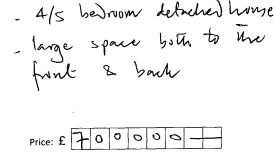 - 4/5 bedroom detached house
- large space both to the
front & back
Price: £ 700000—